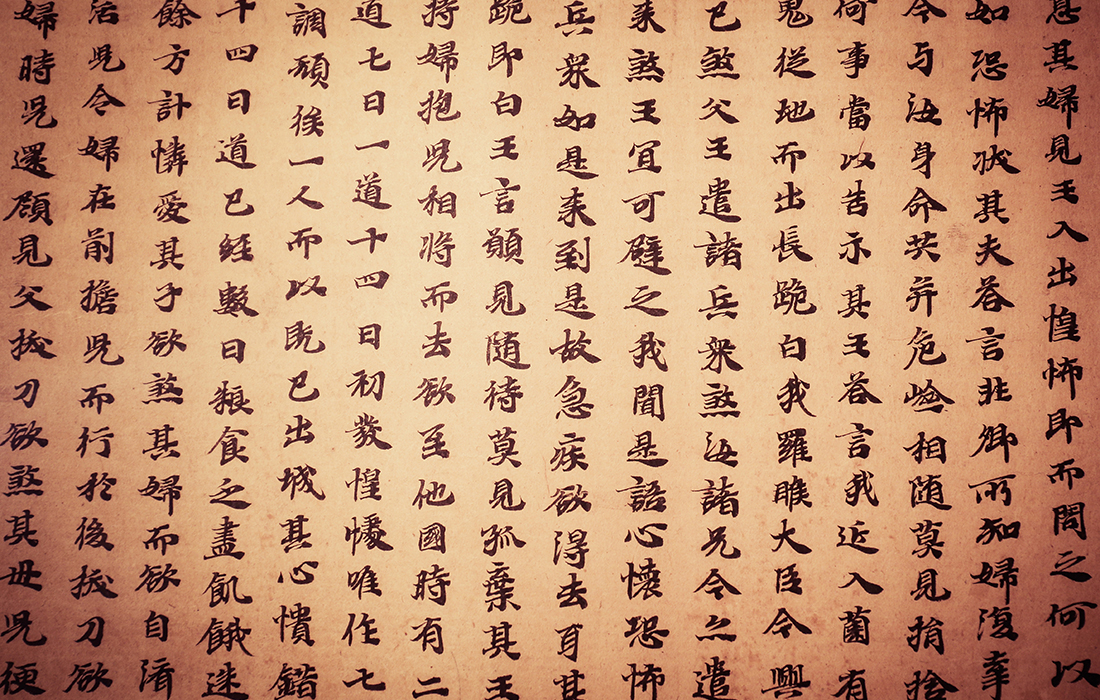 息其婦見王入出惶怖即而問之何以
如恐怖狀其夫答言非卿所知婦復牽
今与汝身命共弁危嶮相随莫見捐捨
何事當以告示其王答言我近入薗有
鬼從地而出長跪白我羅睺大臣今興
已煞父王遣諸兵衆煞汝諸兄今亦遣
来煞王冝可礔之我聞是語心懷恐怖
兵衆如是来到是故急疾欲得去耳其
跪即白王言願見随待莫見孤棄其王
持婦抱児相将而去欲至他國時有二
道七日一道十四日初發惶懅唯作七
調頋後一人而以既已出城其心憒錯
十四日道已經數日粮食之盡飢餓迷
餘方計憐愛其子欲煞其婦而欲自濟
活児令婦在前擔児而行於後拔刀欲
婦時児還頋見父拔刀欲煞其母児梗